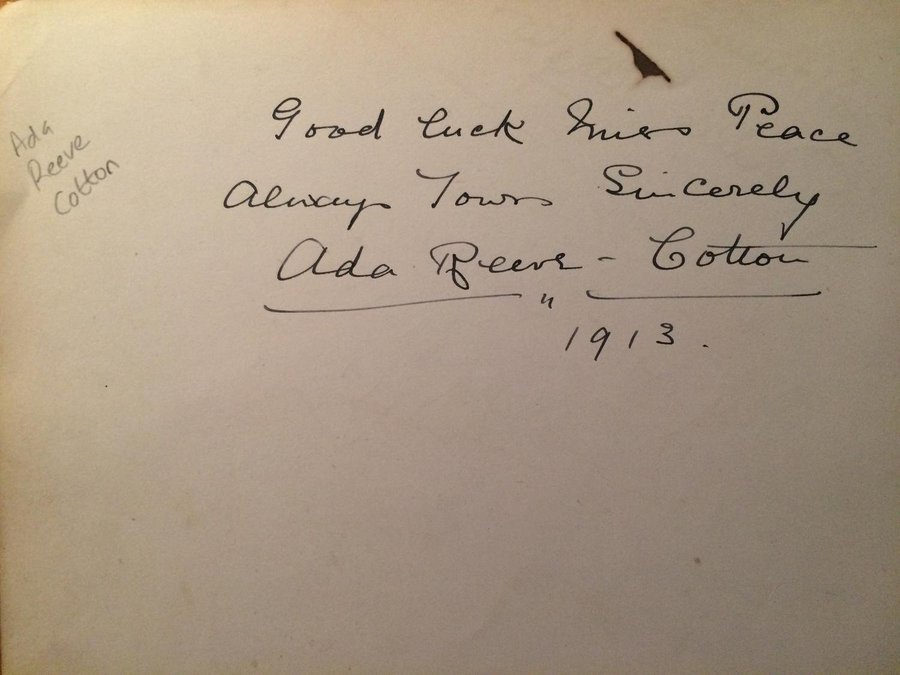 Ada
Reeve
Cotton
Good luck Miss Peace
Always Yours Sincerely
Ada Reeve - Cotton
"
1913.